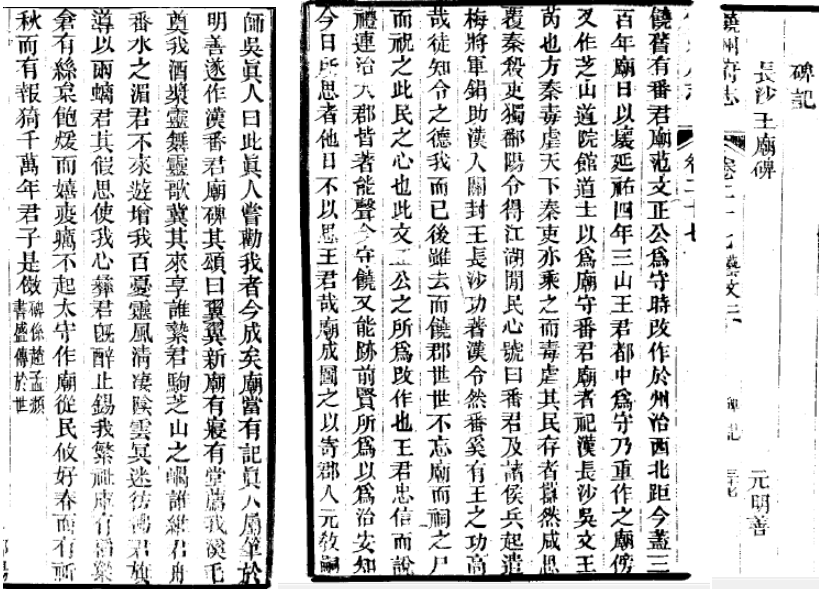 碑記
長沙王廟碑 元明善
饒州府志 卷之二十七 藝文二 碑記
饒舊有番君廟范文正公爲守時改作於州治西北距今蓋三
百年廟日以壞延祐四年三山王君都中爲守乃重作之廟傍
又作芝山道院館道士以爲廟守番君廟者祀漢長沙吳文王
芮也方秦毒虐天下秦吏亦乘之而毒虐其民存者囂然咸思
覆秦殺吏獨鄱陽令得江湖閒民心號曰番君及諸侯兵起遣
梅將軍鋗助漢入關封王長沙功著漢令然番奚有王之功高
哉徒知令之德我而已後雖去而饒郡世世不忘廟而祠之尸
而祝之此民之心也此文正公之所爲改作也王君忠信而說
禮連治大郡皆著能聲今守饒又能跡前賢所爲以爲治安知
今日所思者他日不以思王君哉廟成圖之以寄郡人元教嗣
師吳眞人曰此眞人嘗勸我者今成矣廟當有記眞人屬筆於
明善遂作漢番君廟碑其頌曰翼翼新廟有寢有堂薦我溪毛
奠我酒漿靈舞靈歌冀其來享誰縶君駒芝山之嵎誰維君舟
番水之湄君不來遊增我百憂靈風淸凄陰雲冥迷彷彿君旗
導以兩螭君其假思使我心彝君旣醉止錫我繁祉庫有 
倉有絲枲飽煖而嬉 癘不起太守作廟從民攸好春而有祈
秋而有報猗千萬年君子是傚碑係趙孟頫
書盛傳於世